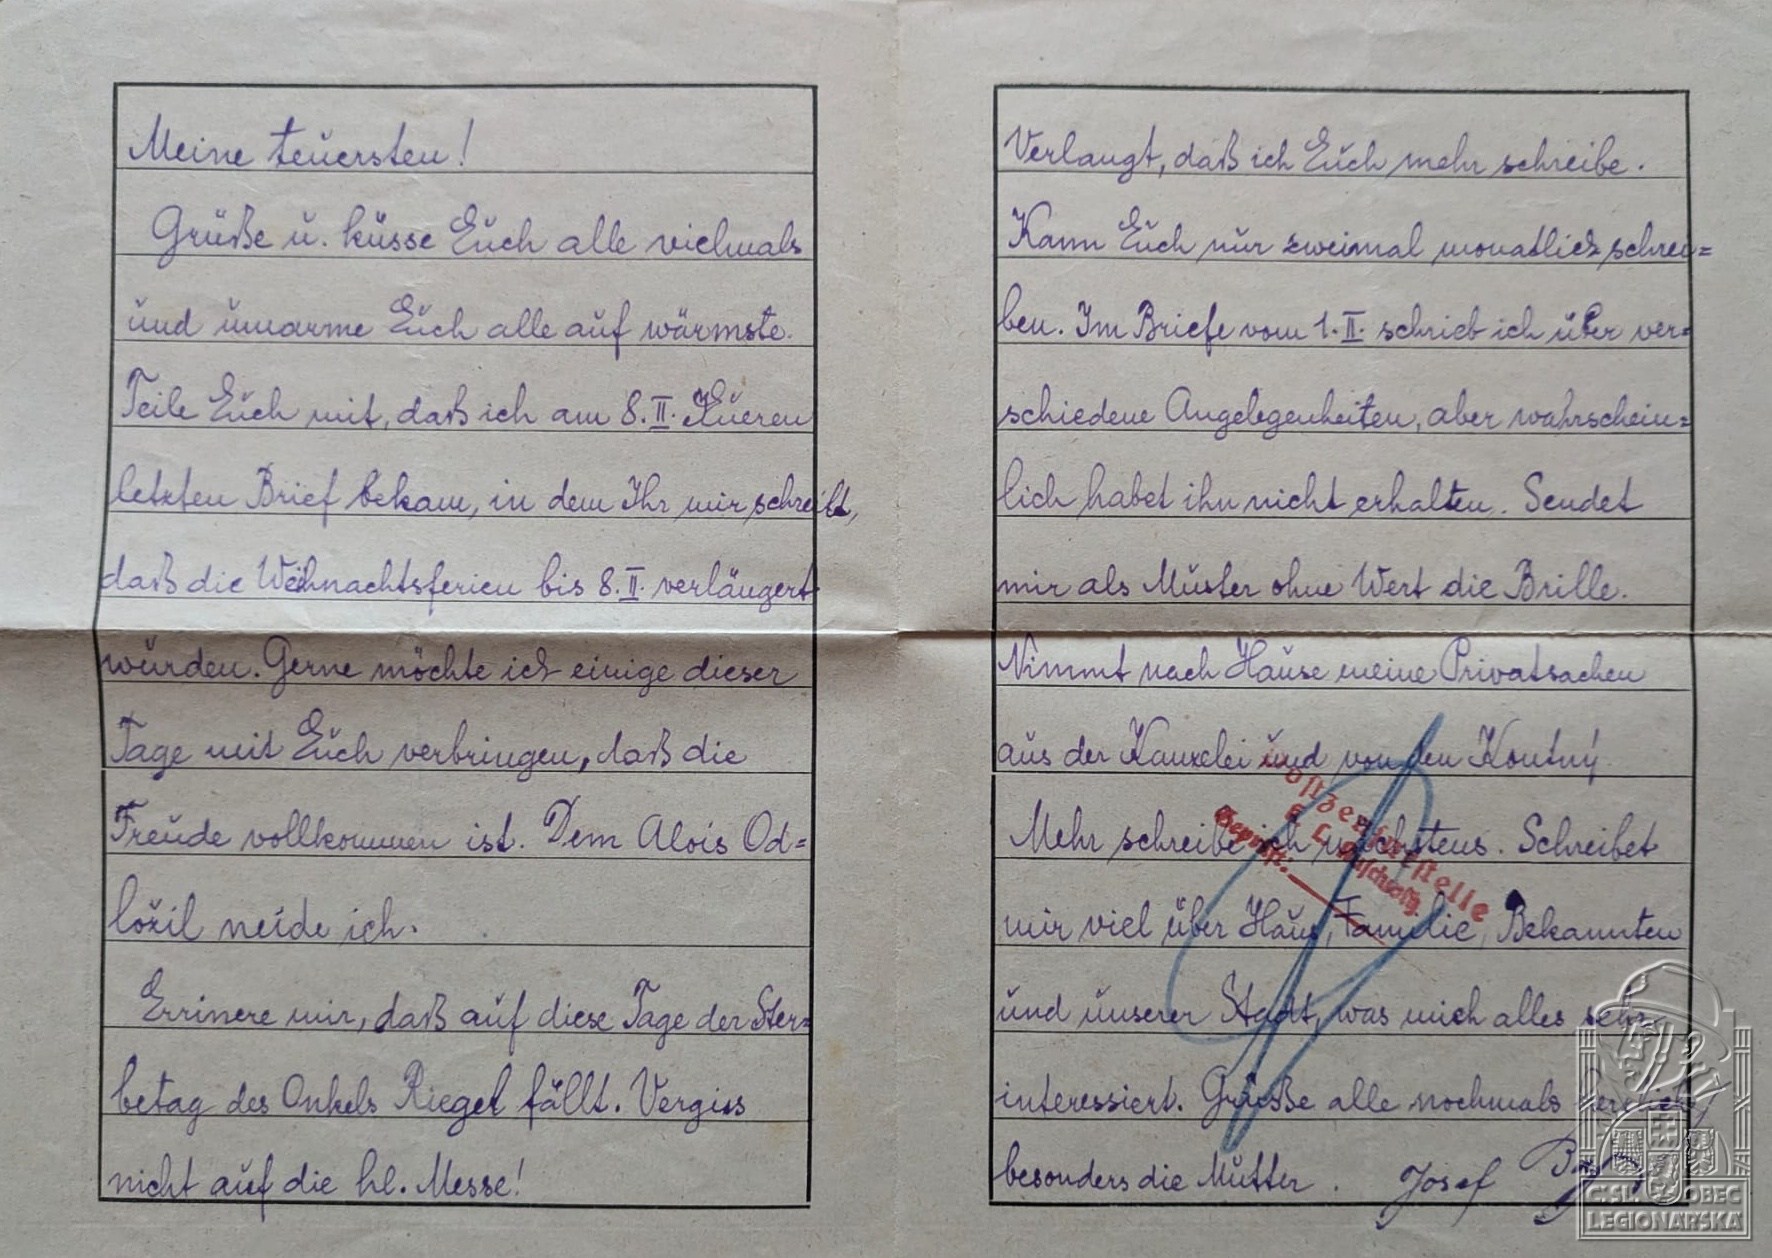 Meine teuersten!
Grüße u. küsse Euch alle vielmals
und umarme Euch alle auf wärmste.
Teile Euch mit, daß ich am 8. II. Eueren
letzten Brief bekam, in dem Ihr mir schreibt,
daß die Weihnachtsferien bis 8. II. verlängert
wurden. Gerne möchte ich einige dieser
Tage mit Euch verbringen, daß die
Freude vollkommen ist. Dem Alois Od=
ložil neide ich.
Errinere mir, daß auf diese Tage der Ster=
betag des Onkels Riegel fällt. Vergiss
nicht auf die hl. Messe!
Verlangt, daß ich Euch mehr schreibe.
Kann Euch nur zweimal monatlich schrei=
ben. Im Briefe vom 1. II. schrieb ich über ver=
schiedene Angelegenheiten, aber wahrschein=
lich habet ihn nicht erhalten. Sendet
mir als Muster ohne Wert die Brille.
Nimmt nach Hause meine Privatsachen
aus der Kanzlei und von den Koutný.
Mehr schreibe ich nächstens. Schreibet
mir viel über Haus, Familie, Bekannten
und unserer Stadt, was mich alles sehr
interessiert. Grüße alle nochmals herzlich
besonders die Mutter. Josef
Postzensurstelle
K. L. Auschwitz
Geprüft:
Č:SL. OBEC
LEGIONÁŘSKÁ